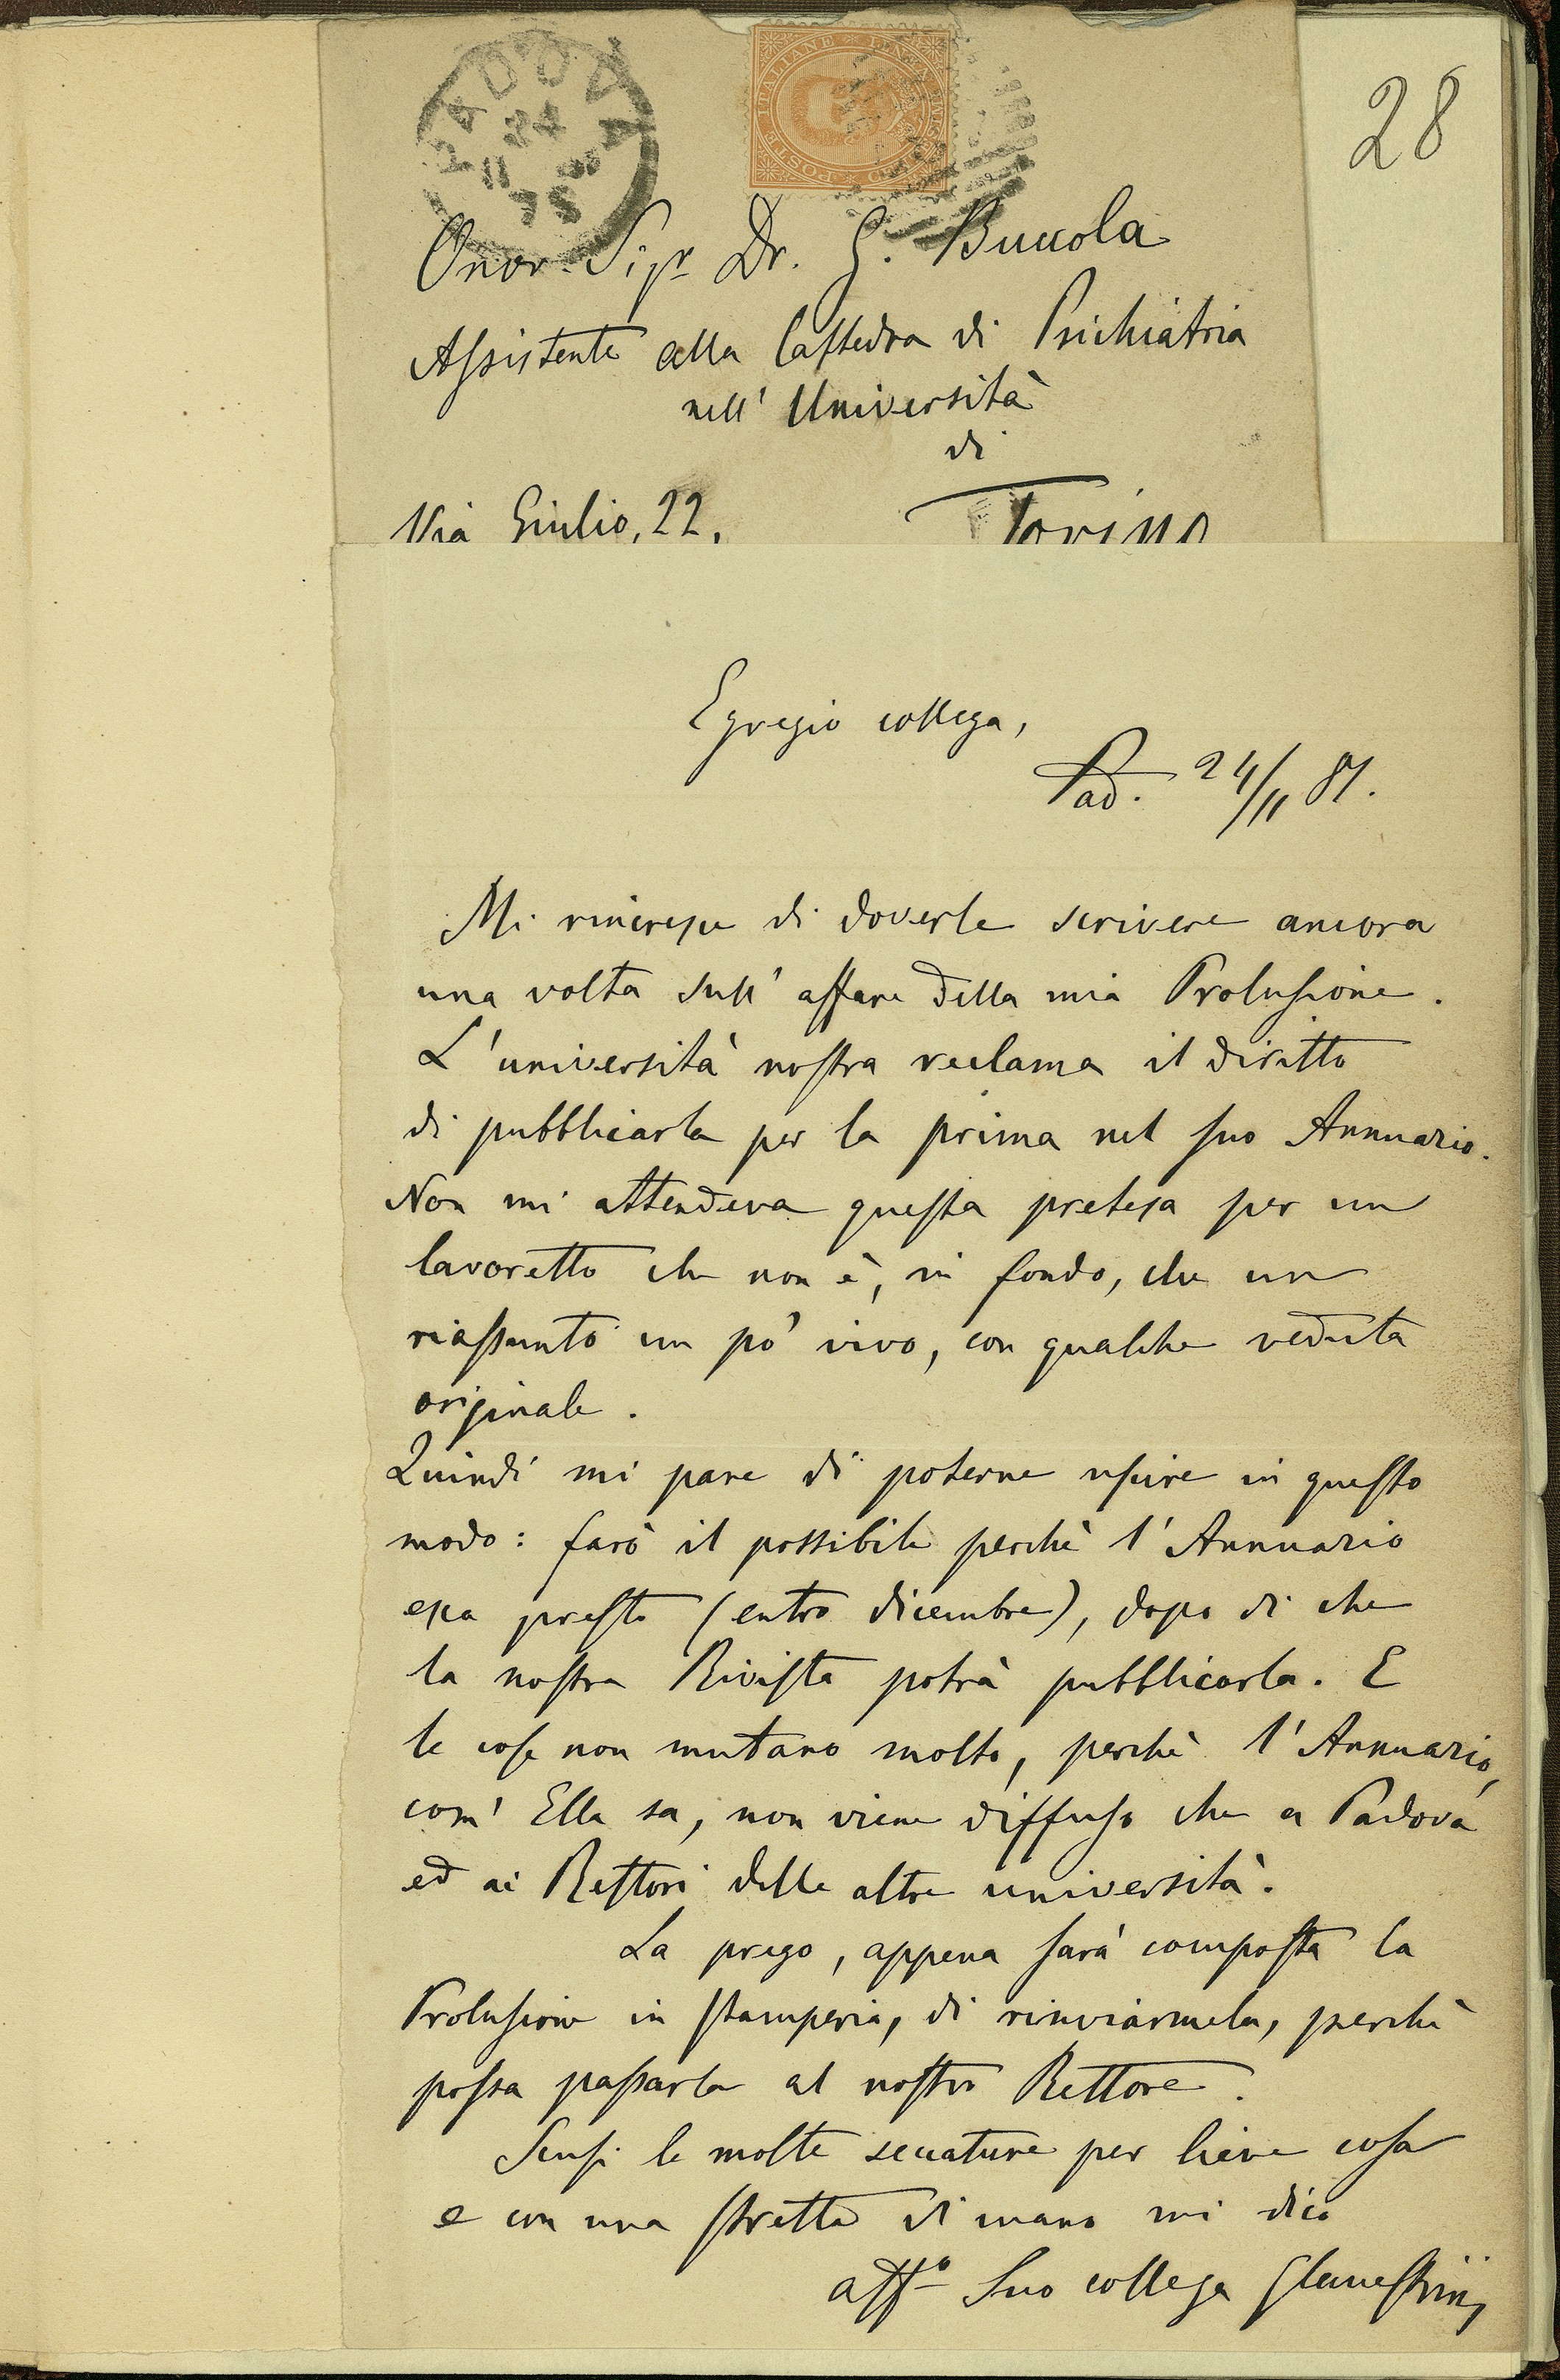 28
PADOVA
24
11
POSTE ITALIANE
Onor. Sigr Dr. G. Buccola
Assistente alla Cattedra di Psichiatria
nell' Università
di
Via Giulio, 22. Torino
Egregio collega,
Pad. 24/11 81.
Mi rincresce di doverle scrivere ancora
una volta sull' affare della mia Prolusione.
L'università nostra reclama il diritto
di pubblicarla per la prima nel suo Annuario.
Non mi attendeva questa pretesa per un
lavoretto che non è, in fondo, che un
riassunto un po' vivo, con qualche veduta
originale.
Quindi mi pare di poterne uscire in questo
modo: farò il possibile perchè l'Annuario
esca presto (entro dicembre), dopo di che
la nostra Rivista potrà pubblicarla. E
le cose non mutano molto, perchè l'Annuario,
com' Ella sa, non viene diffuso che a Padova
ed ai Rettori delle altre università.
La prego, appena sarà composta la
Prolusione in stamperia, di rinviarmela, perchè
possa passarla al nostro Rettore.
Scusi le molte seccature per lieve cosa
e con una stretta di mano mi dico
affo Suo collega GCanestrini